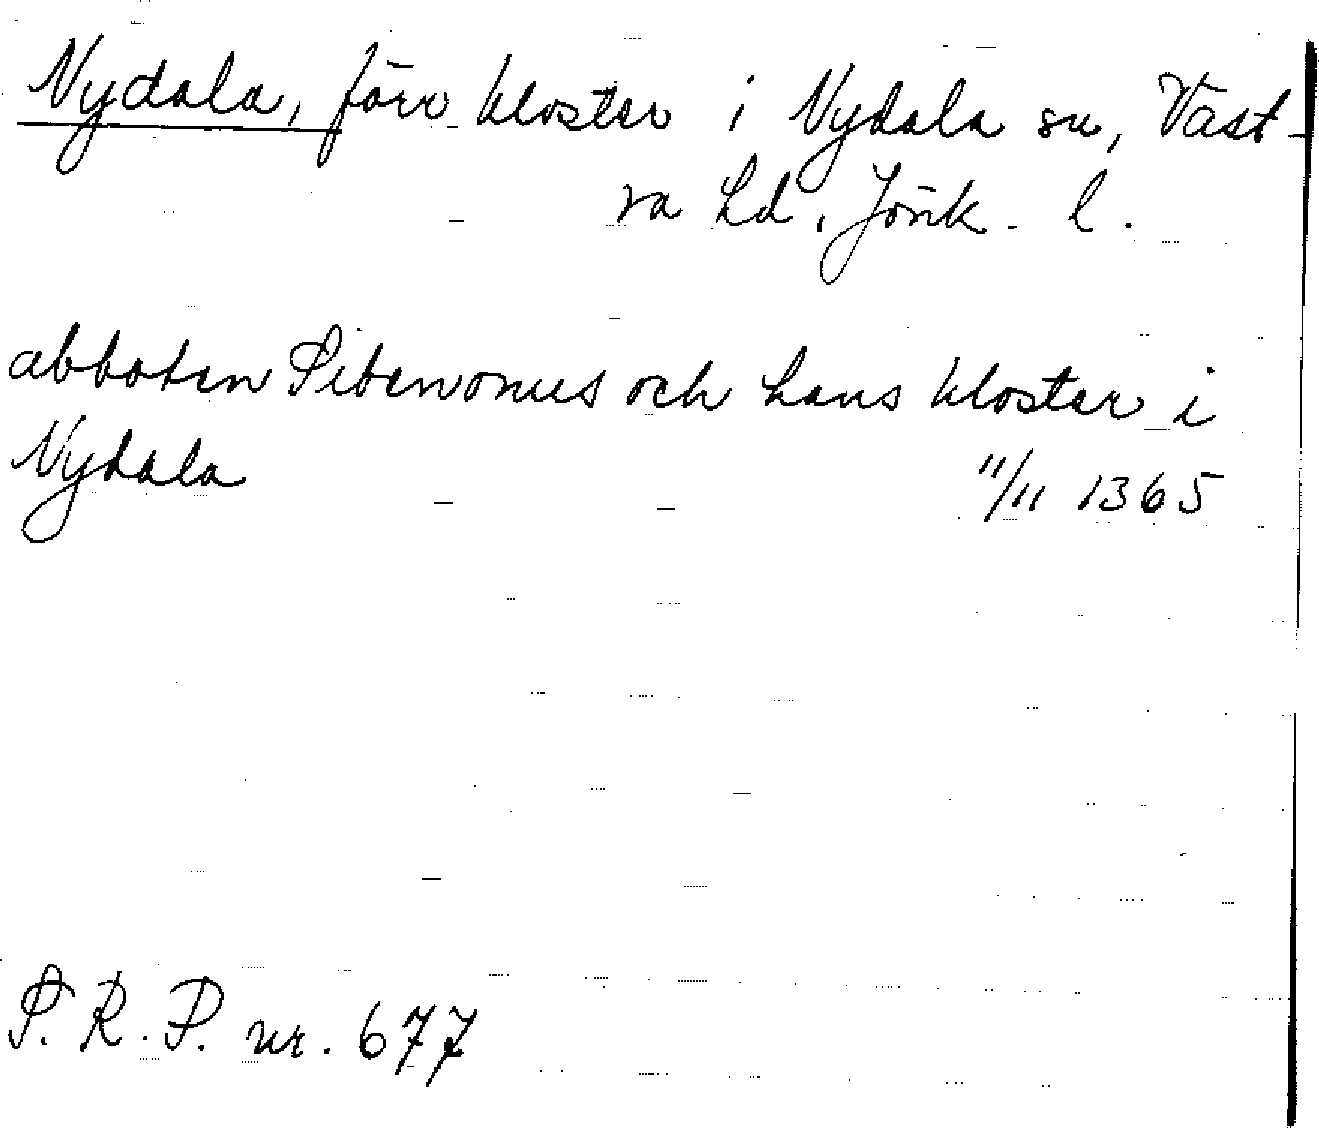 Nydala, förr kloster i Nydala sn, Väst-
ra hd, Jönk. l.
abboten och hans kloster i
Nydala 11/11 1365
P.R.P. nr. 677